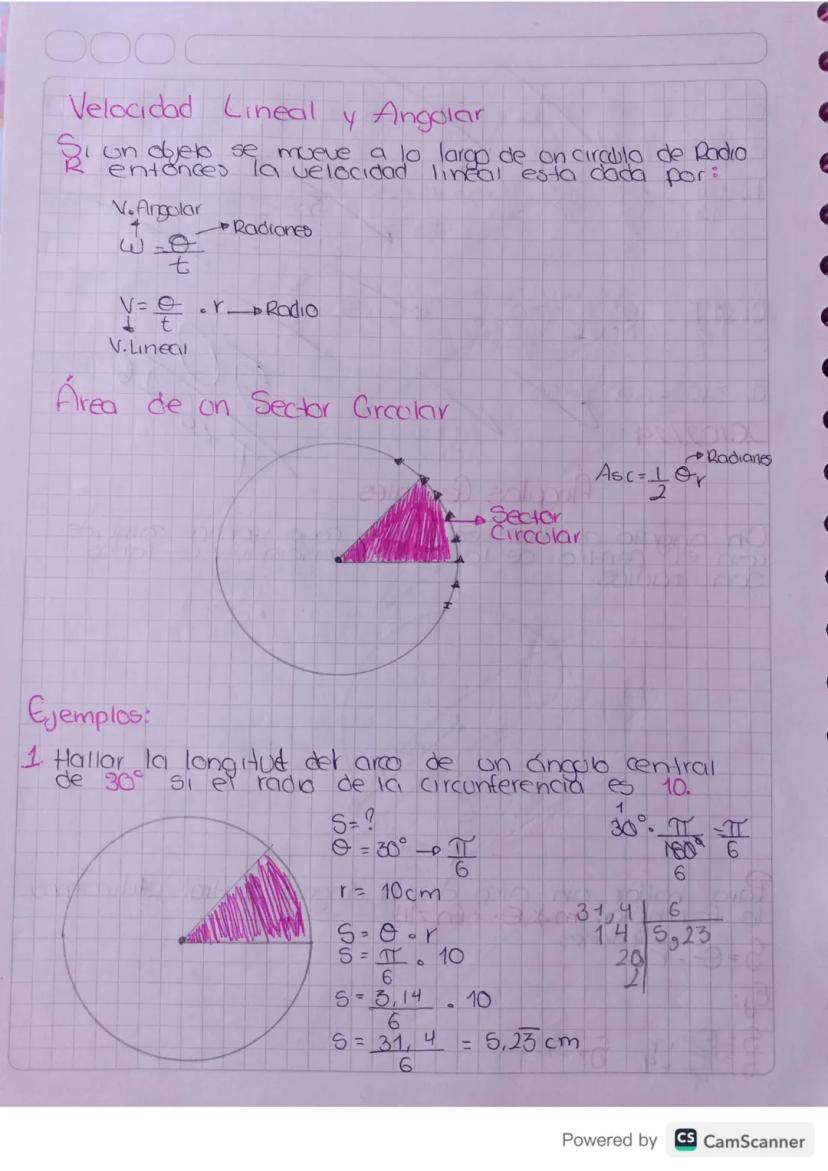 Velocidad Lineal y Angular
Si un objeto se mueve a lo largo de un circulo de Radio
R entonces la velocidad lineal esta dada por:
V. Angular
ω = θ/t → Radianes
V = θ/t . r → Radio
V. Lineal
Área de un Sector Circular
Asc = 1/2 θr → Radianes
Sector
Circular
Ejemplos:
1 Hallar la longitud del arco de un ángulo central
de 30° si el radio de la circunferencia es 10.
S = ?
θ = 30° → π/6
r = 10cm
S = θ . r
S = π/6 . 10
S = 3,14/6 . 10
S = 31,4/6 = 5,23 cm
1
30° . π/180° = π/6
6
31,4 | 6
14 | 5,23
20
2
Powered by CS CamScanner